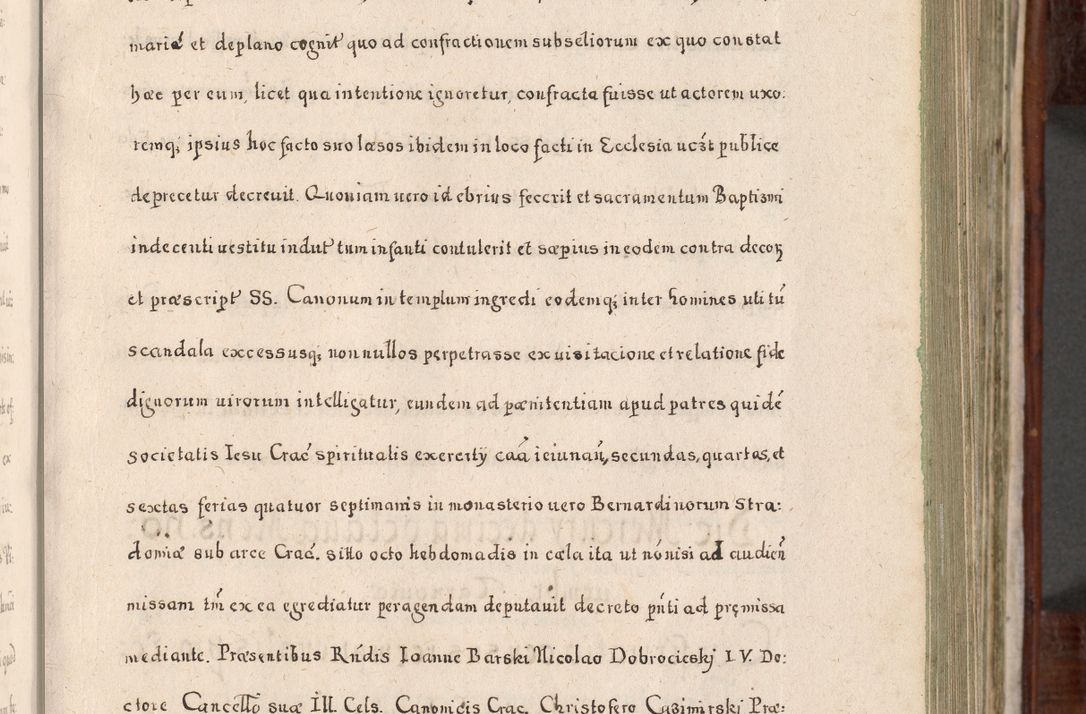 mariæ et deplano cognit quo ad confractionem subseliorum ex quo constat
hæc per eum, licet qua intentione ignoretur, confracta fuisse ut actorem uxo:
remq; ipsius hoc facto suo læsos ibidem in loco facti in Ecclesia uczt publice
deprecetur decreuit. Quoniam uero id ebrius fecerit et sacramentum Baptismi
indecenti uestitu indut tum infanti contulerit et sæpius in eodem contra decoꝝ
et præscript SS. Canonum in templum ingredi eodemq; inter homines uti tú
scandala excessusq; nonnullos perpetrasse ex uisitacione et relatione fide
dignorum uirorum intelligatur, eundem ad pænitentiam apud patres quidé
societatis Iesu Crac spiritualis exercitÿ caá ieiunań, secundas, quartas, et
sextas ferias quatuor septimanis in monasterio uero Bernardinorum Stra:
domiæ sub arce Crac. sitto octo hebdomadis in cæla ita ut nónisi ad audień
missam tḿ ex ea egrediatur peragendam deputauit decreto pńti ad pręmissa
mediante. Præsentibus Rńdis Ioanne Barski Nicolao Dobrocieskj I. V. Do:
ctore Cancełło suæ Ill. Cels. Canonicis Crac. Christofero Cazimirski Præ: